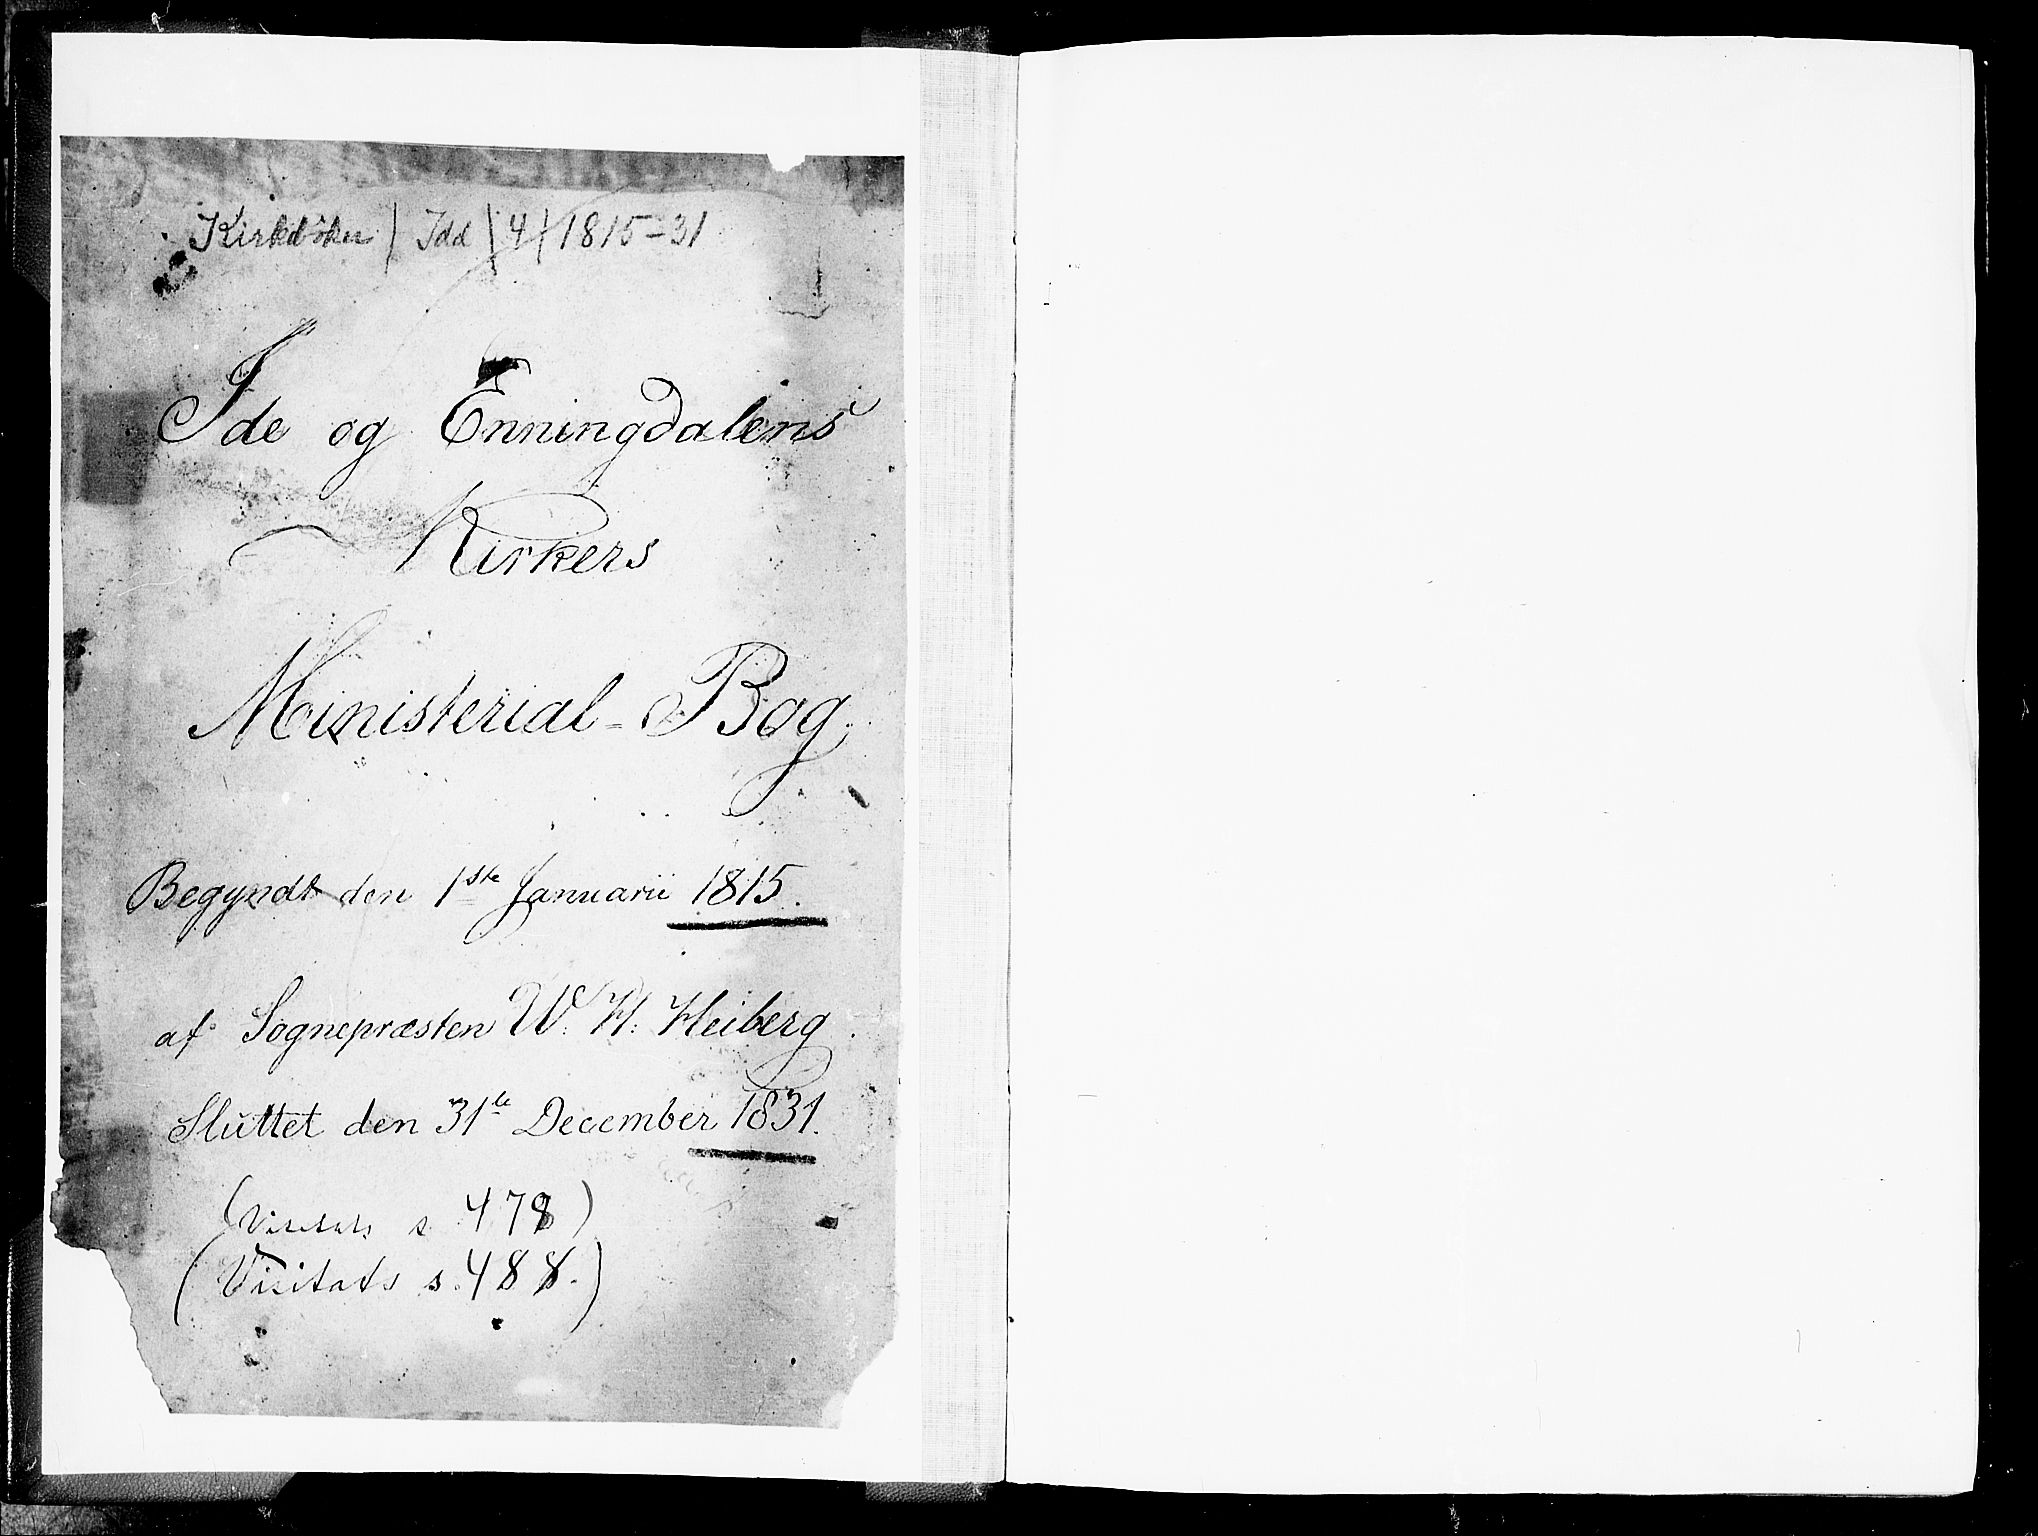 Kirkebøker | Idd | 4 | 1815-31
Ide og Enningdalens
Kirkers
Ministerial-Bog
Begyndt den 1ste Januarii 1815.
af Sognepræsten W. H. Heiberg
Sluttet den 31te December 1831.
(Visitats s. 478)
(Visitats s. 488.)